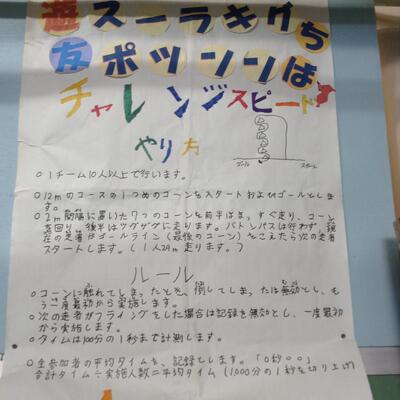 遊友スポーツランキングちば
チャレンジスピード
やり方
スタート
ゴール
○1チーム10人以上で行います。
○12mのコースの1つめのコーンをスタートおよびゴールとします。
○2m間隔に置いた7つのコーンを前半はまっすぐ走り、コーンを回り、後半はジグザグに走ります。バトンパスは行わず、現在の走者がゴールライン(最後のコーン)をこえたら次の走者スタートします。(1人24m走ります。)
ルール
○コーンに触れてしまったとき、倒してしまったは無効とし、もう一度最初から実施します。
○次の走者がフライングをした場合は記録を無効とし、一度最初から実施します。
○タイムは100分の1秒まで計測します。
○全参加者の平均タイムを、記録とします。「0秒00」
合計タイム÷実施人数=平均タイム(1,000分の1秒を切り上げ